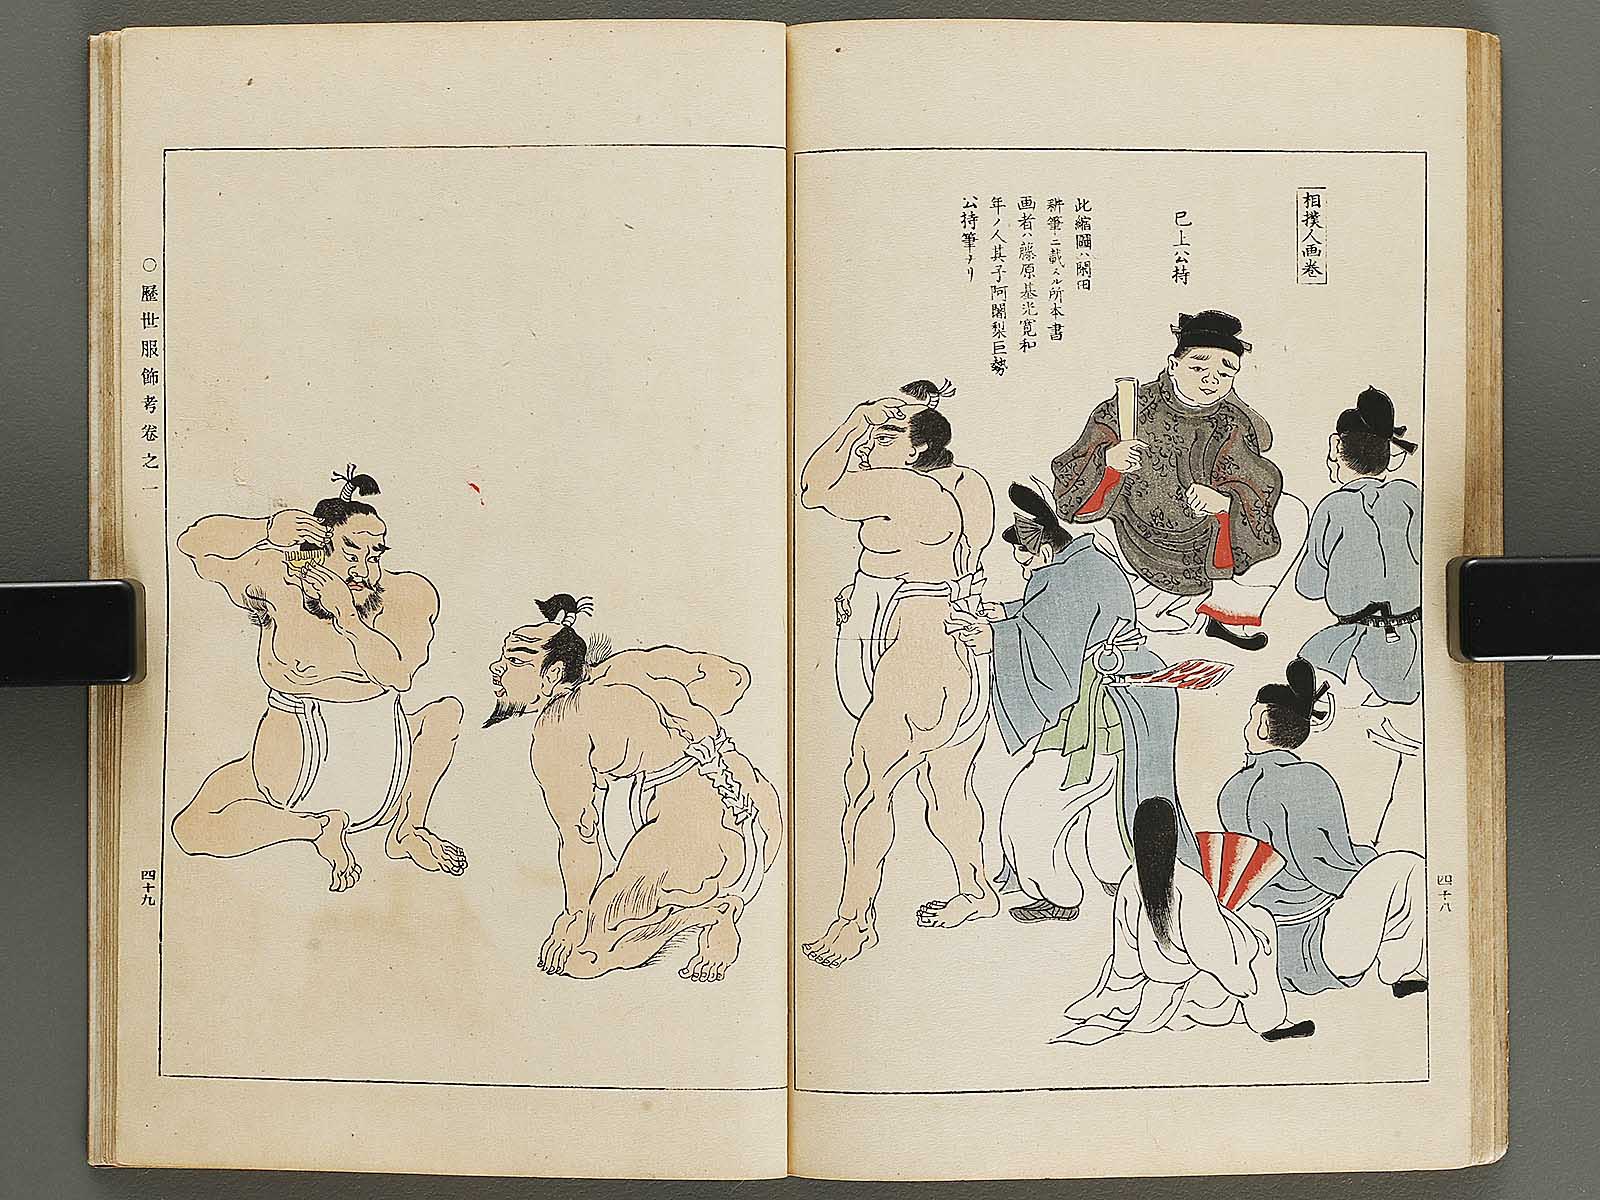 相撲人画巻
已上公持
此縮圖ハ閑田
耕筆ニ載スル所本書
画者ハ藤原基光寛和
年ノ人其子阿闍梨巨勢
公持筆ナリ
四十八
○歴世服飾考卷之一
四十九